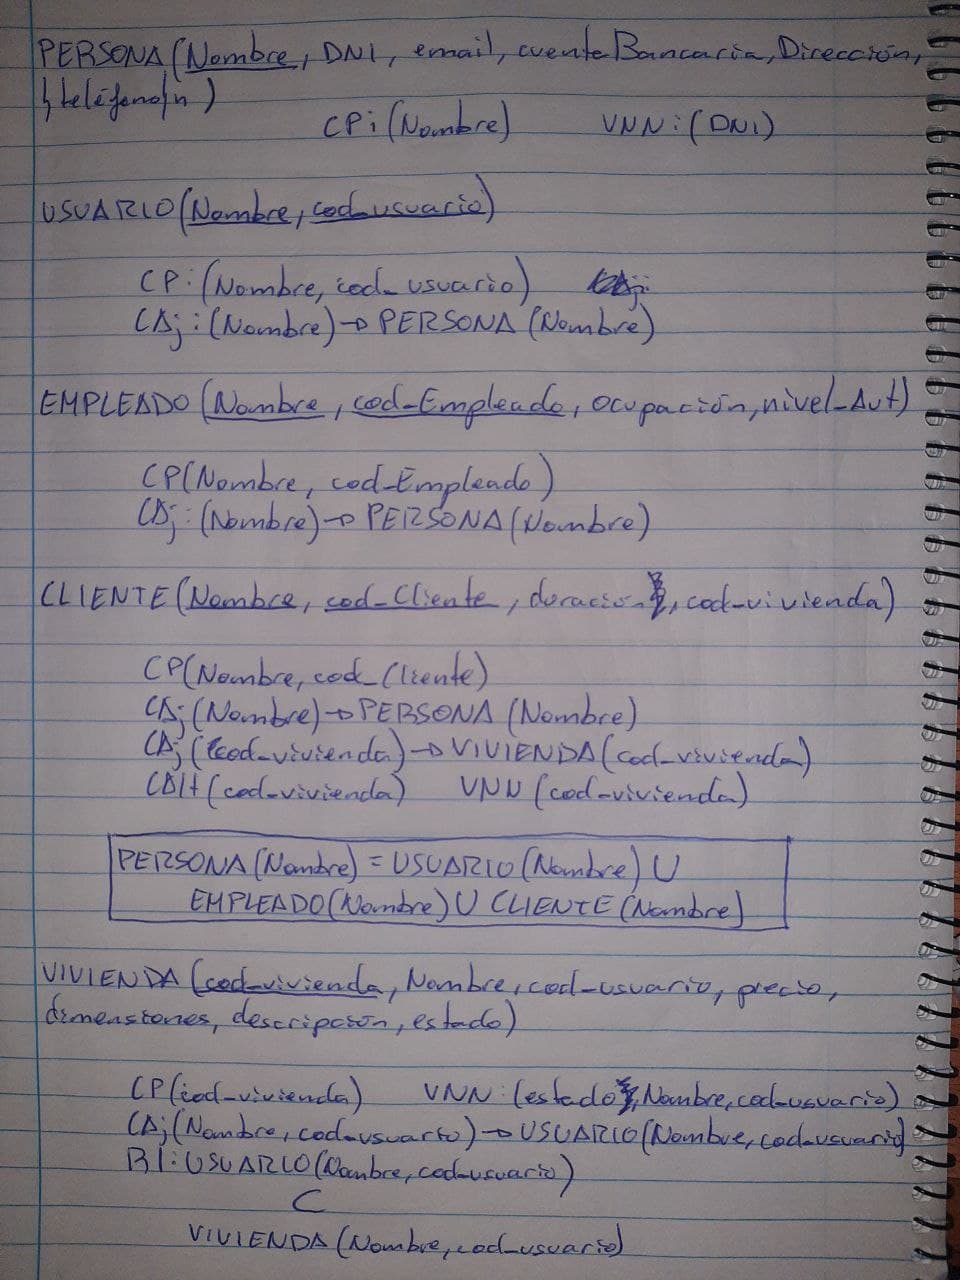 PERSONA(Nombre, DNI, email, cuentaBancaria, Dirección,
{teléfono}n)
CP:(Nombre) VNN:(DNI)
USUARIO(Nombre, cod_usuario)
CP:(Nombre, cod_usuario)
CAj:(Nombre)→PERSONA(Nombre)
EMPLEADO(Nombre, cod_Empleado, ocupación, nivel_Aut)
CP(Nombre, cod_Empleado)
CAj:(Nombre)→PERSONA(Nombre)
CLIENTE(Nombre, cod_Cliente, duración, cod_vivienda)
CP(Nombre, cod_Cliente)
CAj(Nombre)→PERSONA(Nombre)
CAj(cod_vivienda)→VIVIENDA(cod_vivienda)
CAlt(cod_vivienda) VNN(cod_vivienda)
PERSONA(Nombre) = USUARIO(Nombre) U
EMPLEADO(Nombre) U CLIENTE(Nombre)
VIVIENDA(cod_vivienda, Nombre, cod_usuario, precio,
dimensiones, descripción, estado)
CP(cod_vivienda) VNN:(estado, Nombre, cod_usuario)
CAj(Nombre, cod_usuario)→USUARIO(Nombre, cod_usuario)
RI:USUARIO(Nombre, cod_usuario)
⊂
VIVIENDA(Nombre, cod_usuario)